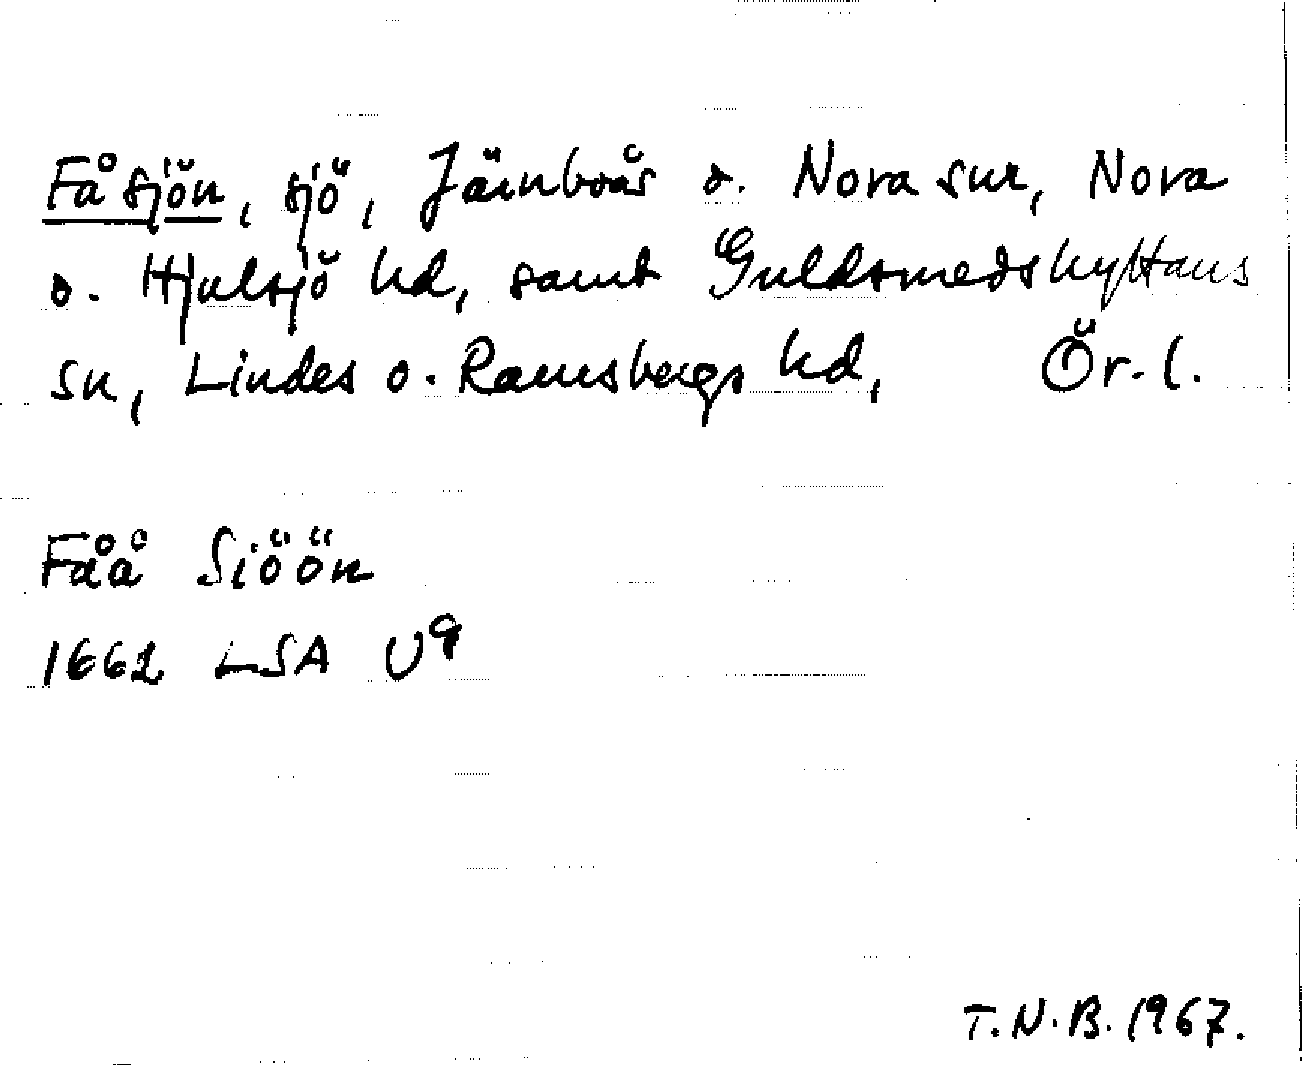 Fåsjön, sjö, Järnboås o. Nora snr, Nora
o. Hjulsjö hd, samt Guldsmedshyttans
sn, Lindes o. Ramsbergs hd, Ör. l.
Fåå Siöön
1662 LSA U9
T.N.B. 1967.